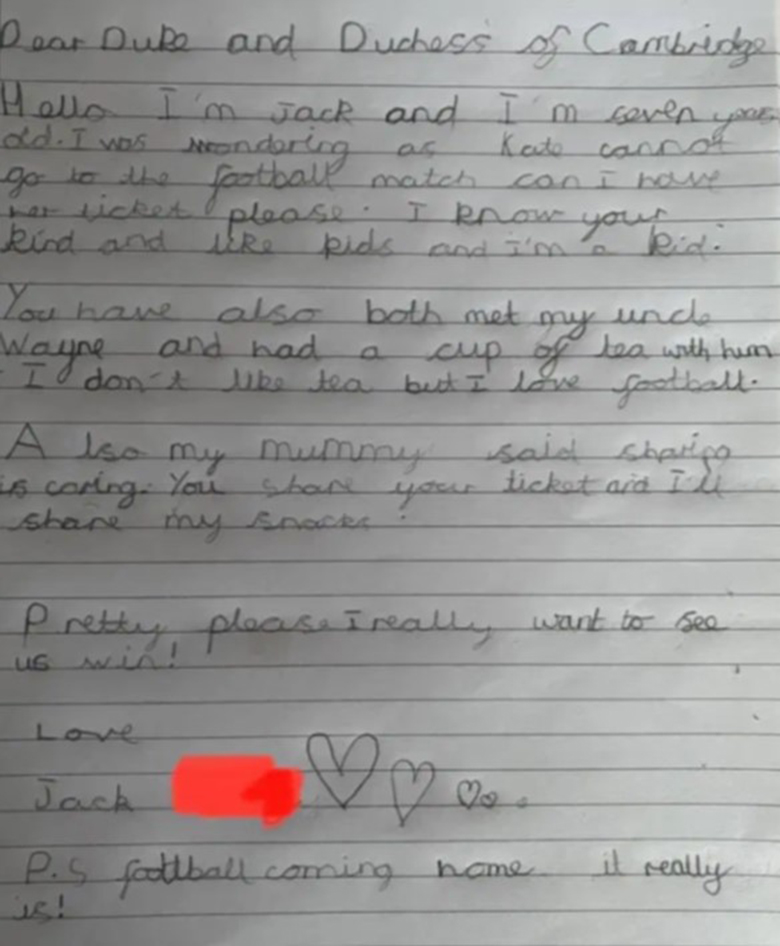 Dear Duke and Duchess of Cambridge
Hello I'm Jack and I'm seven years
old. I was wondering as Kate cannot
go to the football match can I have
her ticket please. I know your
kind and like kids and i'm a kid.
You have also both met my uncle
Wayne and had a cup of tea with him
I don't like tea but I love football.
Also my mummy said sharing
is caring. You share your ticket and I'll
share my snacks.
Pretty please I really want to see
us win!
Love
Jack
P.S footlball coming home it really
is!